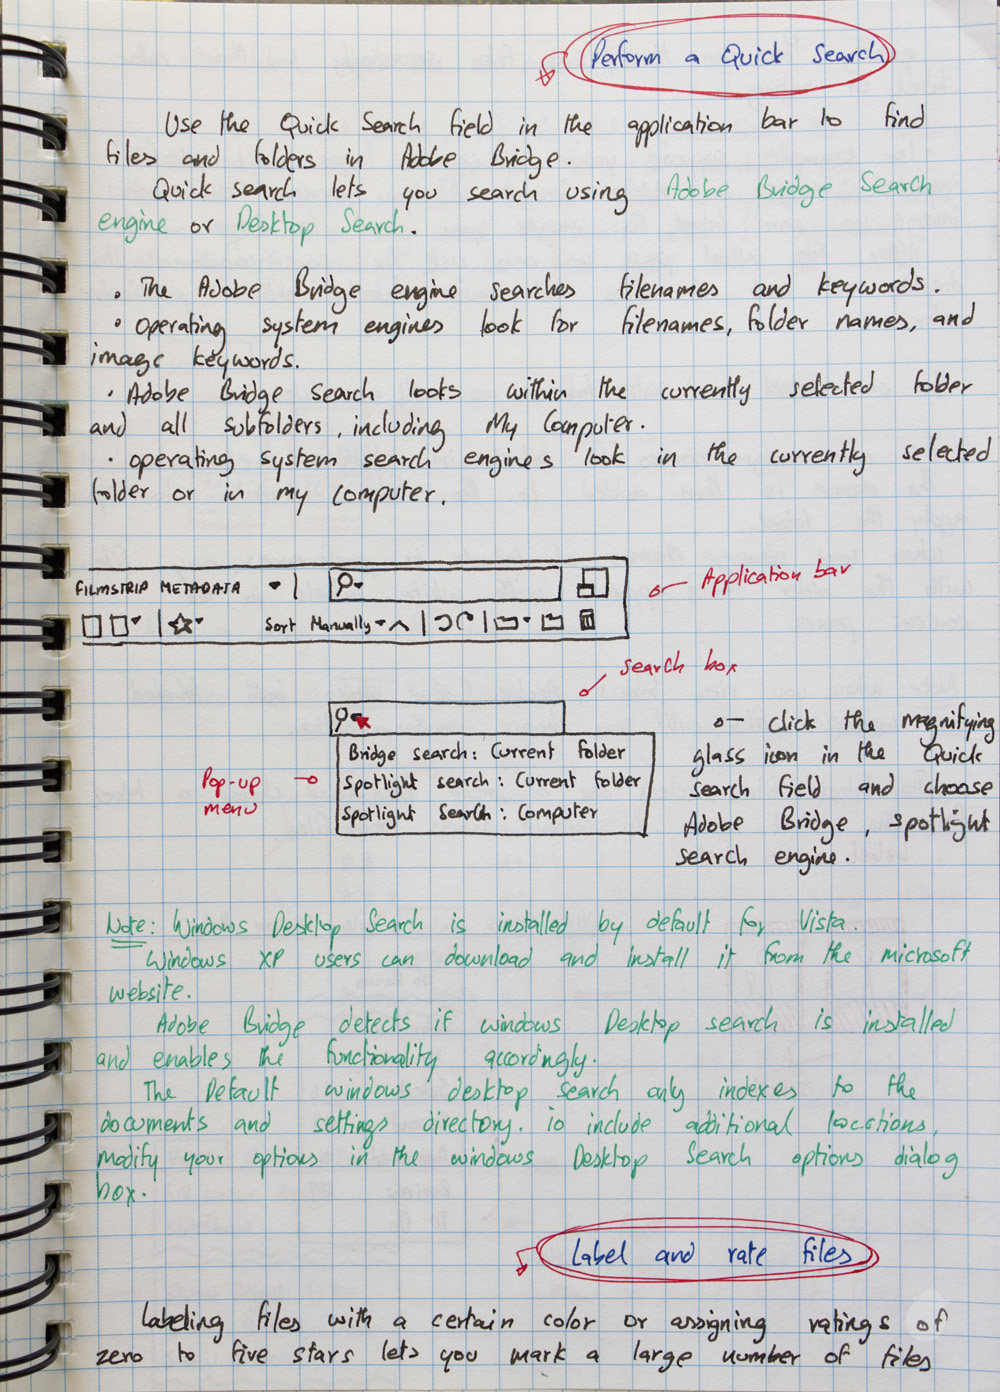 Perform a Quick Search
Use the Quick Search field in the application bar to find
files and folders in Adobe Bridge.
Quick search lets you search using Adobe Bridge Search
engine or Desktop Search.
• The Adobe Bridge engine searches filenames and keywords.
• operating system engines look for filenames, folder names, and
image keywords.
• Adobe Bridge search looks within the currently selected folder
and all subfolders, including My Computer.
• operating system search engines look in the currently selected
folder or in my computer.
FILMSTRIP METADATA
Sort Manually
Application bar
search box
Bridge search: Current folder
Spotlight search: Current folder
Spotlight Search: Computer
Pop-up
menu
click the magnifying
glass icon in the Quick
search field and choose
Adobe Bridge, spotlight
search engine.
Note: Windows Desktop Search is installed by default for Vista.
Windows XP users can download and install it from the microsoft
website.
Adobe Bridge detects if windows Desktop search is installed
and enables the functionality accordingly.
The Default windows desktop search only indexes to the
documents and settings directory. To include additional locations,
modify your options in the windows Desktop Search options dialog
box.
Label and rate files
Labeling files with a certain color or assigning ratings of
zero to five stars lets you mark a large number of files